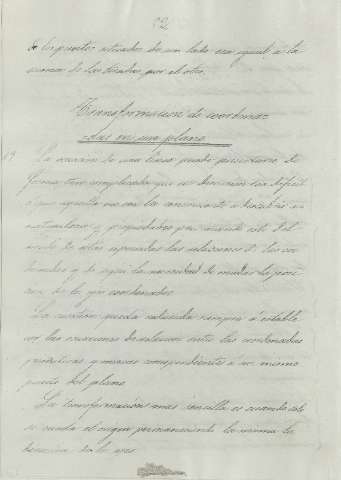 12
de los puntos situados de un lado sea igual á la
suma de los tirados por el otro.
Transformacion de coordena-
das en un plano
La ecuacion de una linea puede presentarse de
forma tan complicada que se dificil
ó que aquella no sea la conveniente á descubrir su
naturaleza y propiedades
de ellas las relaciones de las coor-
denadas y de aqui la necesidad de mudar la posi-
cion de los ejes coordenados.
La cuestion queda reducida siempre á estable-
cer las ecuaciones de relacion entre las coordenadas
primitivas y nuevas correspondientes á un mismo
punto del plano.
La transformacion mas sencilla es cuando solo
se muda el origen permaneciendo la misma la
direccion de los ejes